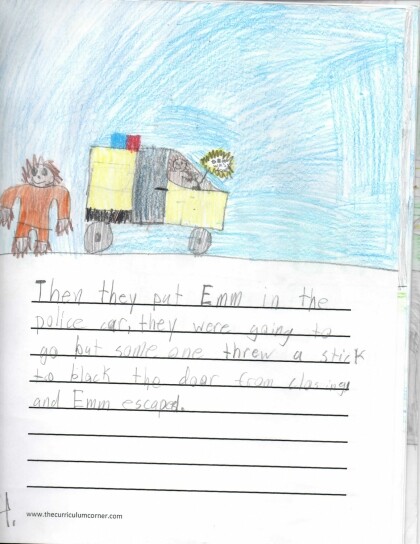 Then they put Emm in the
police car, they were going to
go but some one threw a stick
to black the door from closing
and Emm escaped.
4.
www.thecurriculumcorner.com